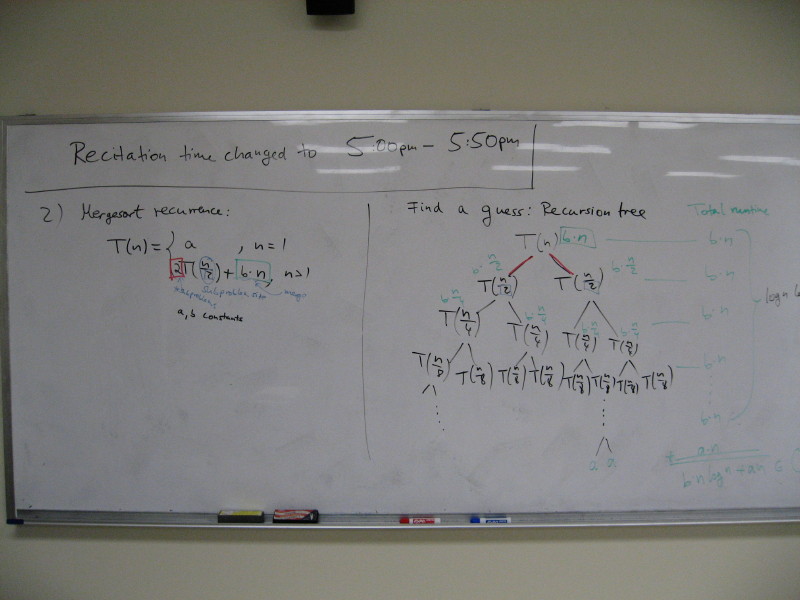 Recitation time changed to 5:00pm - 5:50pm
2) Mergesort recurrence:
T(n) = { a , n = 1
2T(n/2) + b·n, n>1
subproblem size merge
a, b constants
Find a guess: Recursion tree
Total runtime
T(n) b·n b·n
b·n/2 b·n/2
T(n/2) T(n/2) b·n
b·n/4 b·n/4 b·n/4 b·n/4
T(n/4) T(n/4) T(n/4) T(n/4) b·n
T(n/8) T(n/8) T(n/8) T(n/8) T(n/8) T(n/8) T(n/8) T(n/8) b·n
b·n
a a
+ a·n
b·n log n + an ∈